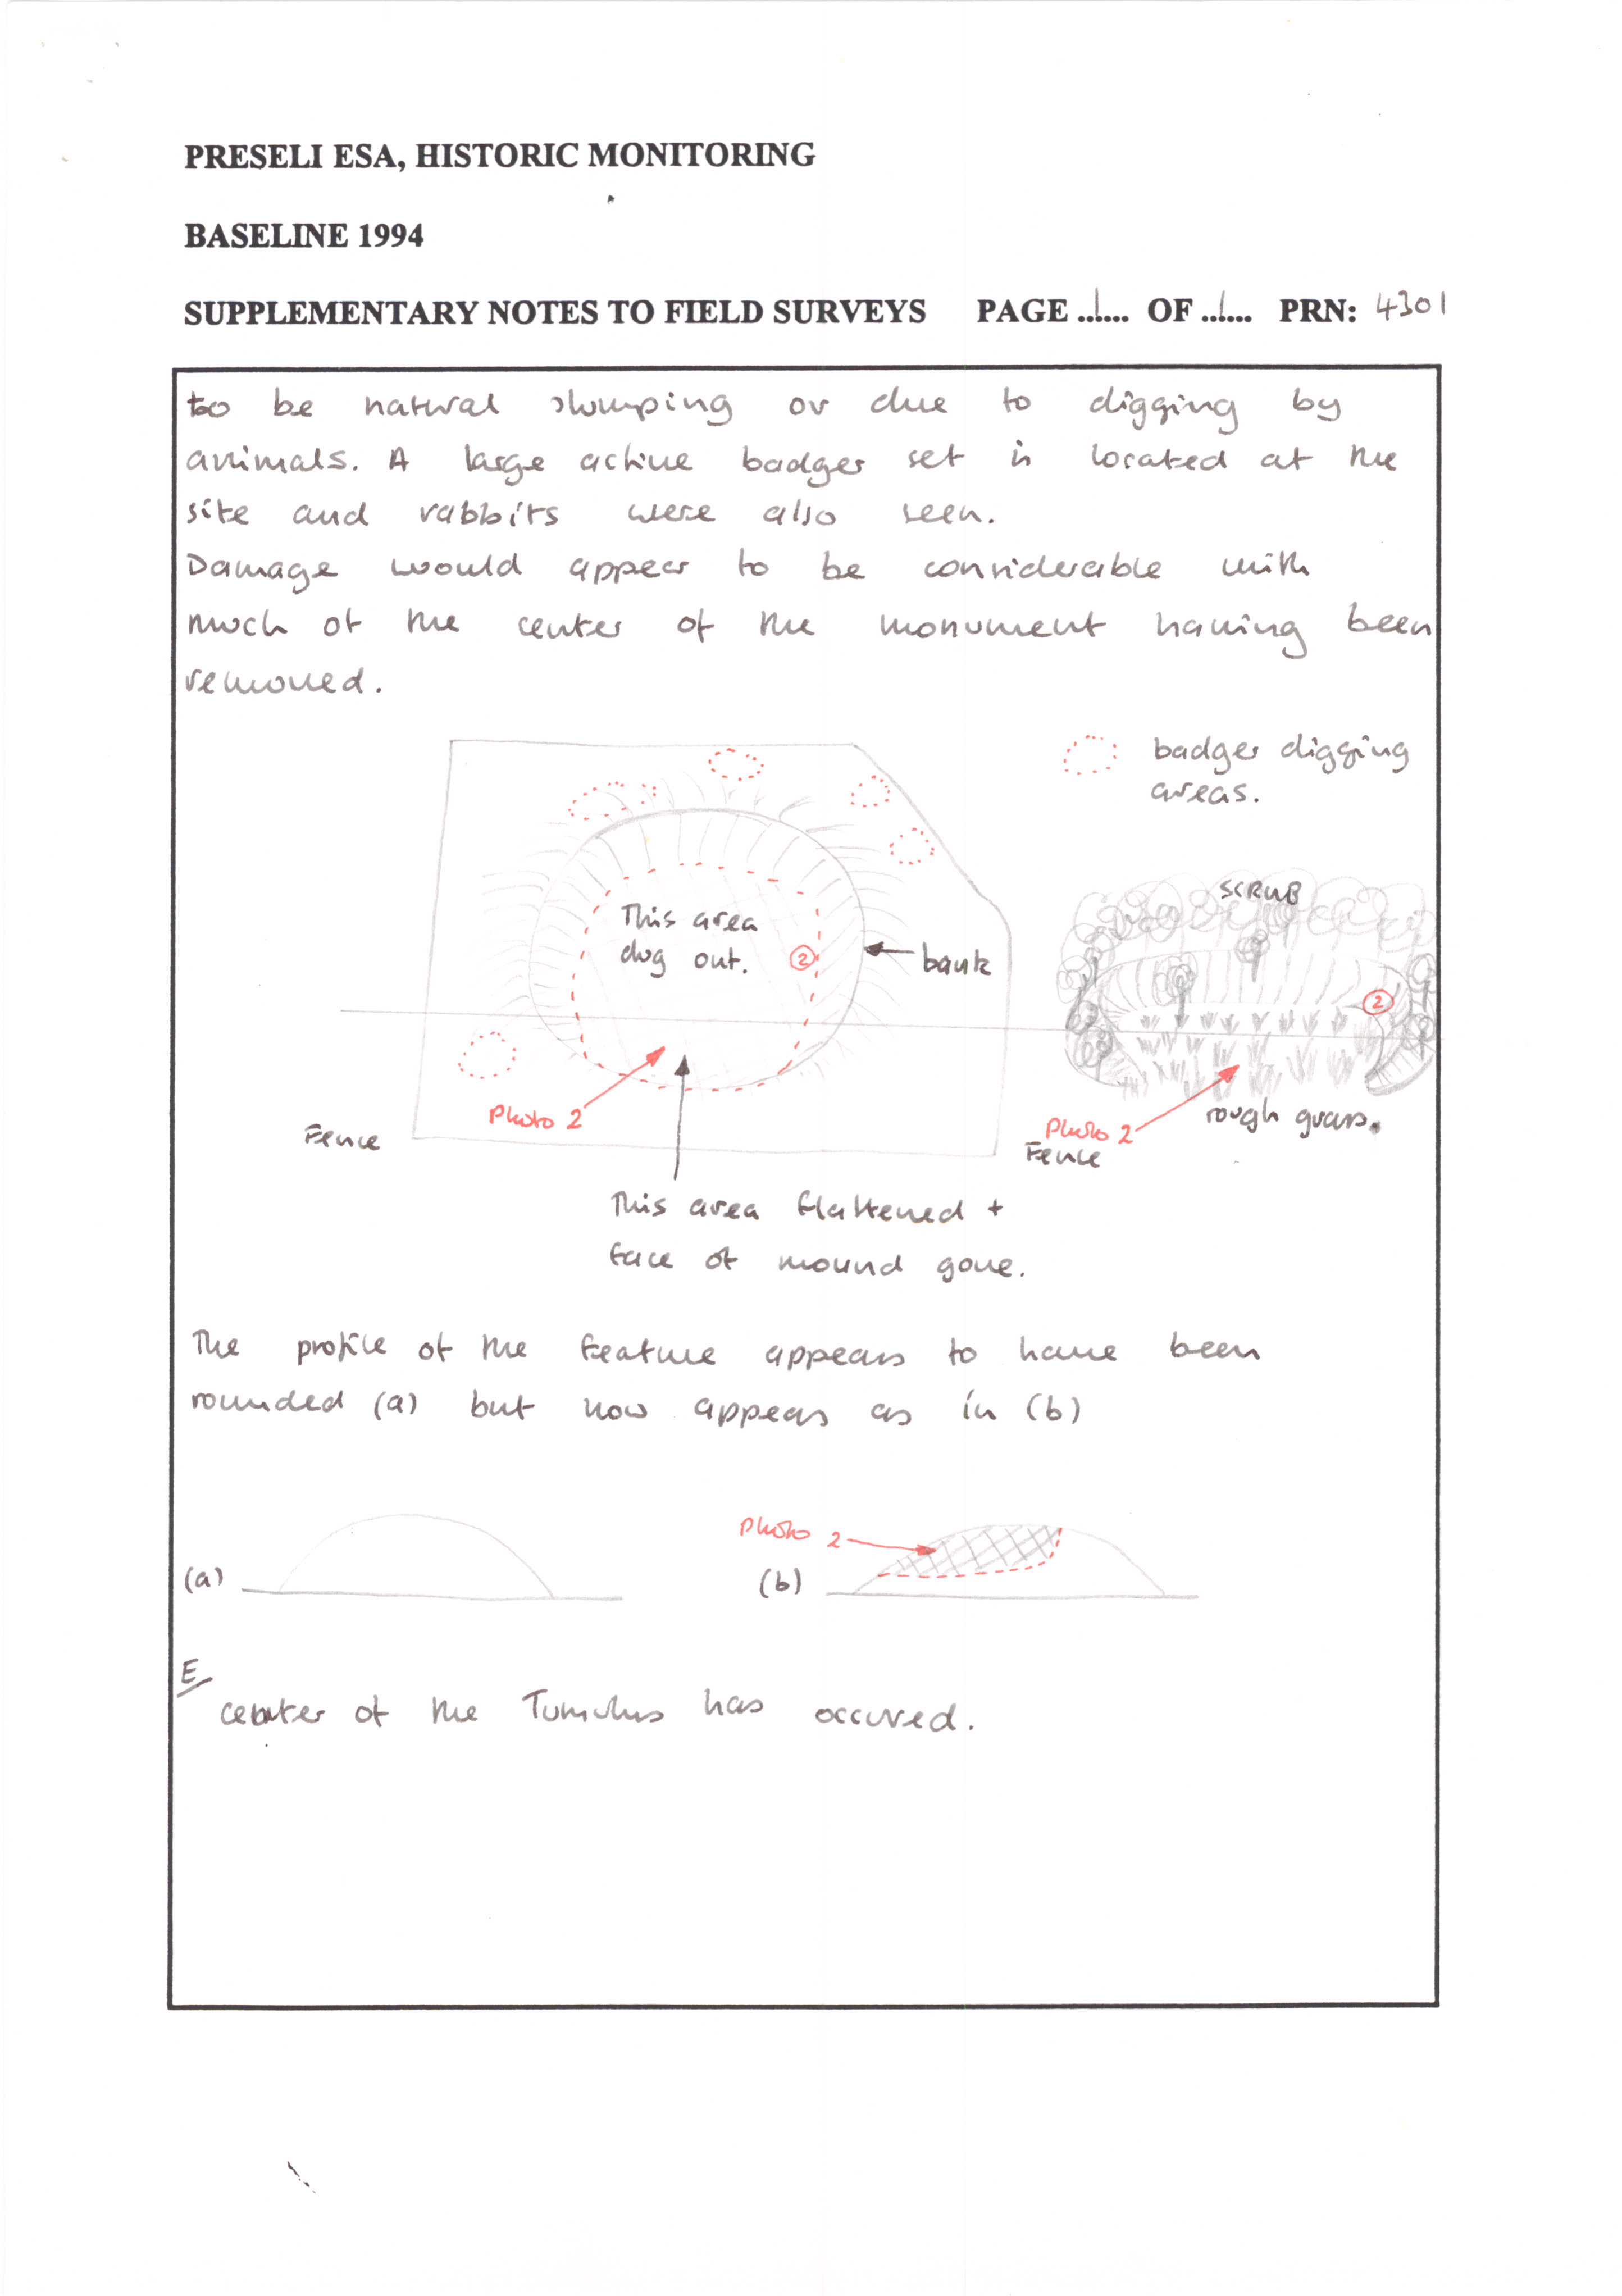 PRESELI ESA, HISTORIC MONITORING
BASELINE 1994
SUPPLEMENTARY NOTES TO FIELD SURVEYS PAGE ..1.... OF ..1.... PRN: 4301
to be natural slumping or due to digging by
animals. A large active badger set is located at the
site and rabbits were also seen.
Damage would appear to be considerable with
much of the center of the monument having been
removed.
badger digging
areas.
This area
dug out.
2
bank
SCRUB
2
Photo 2
Fence
Photo 2
Fence
rough grass.
This area flattened +
face of mound gone.
The profile of the feature appears to have been
rounded (a) but now appears as in (b)
Photo 2
(a)
(b)
E
center of the Tumulus has occured.